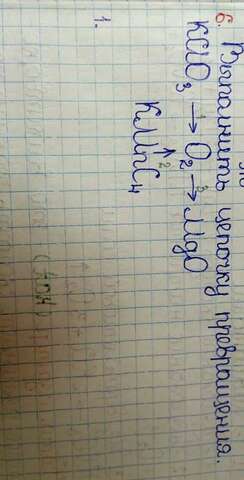 6. Выполнить цепочку превращения.
KClO₃ →¹ O₂ →³ MgO
↑²
KMnO₄
1.